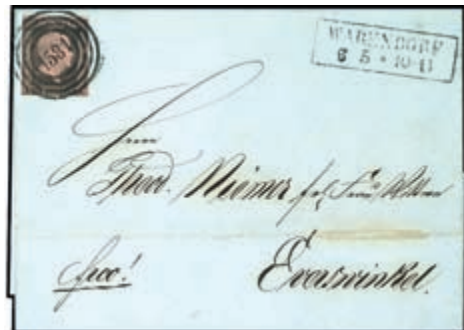 1581
WARENDORF
6 5 * 10-11
Herrn
Theod. Niemer
frco!
Everswinkel.